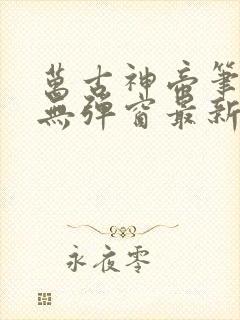 萬古神帝筆
無彈窗最新
永夜零